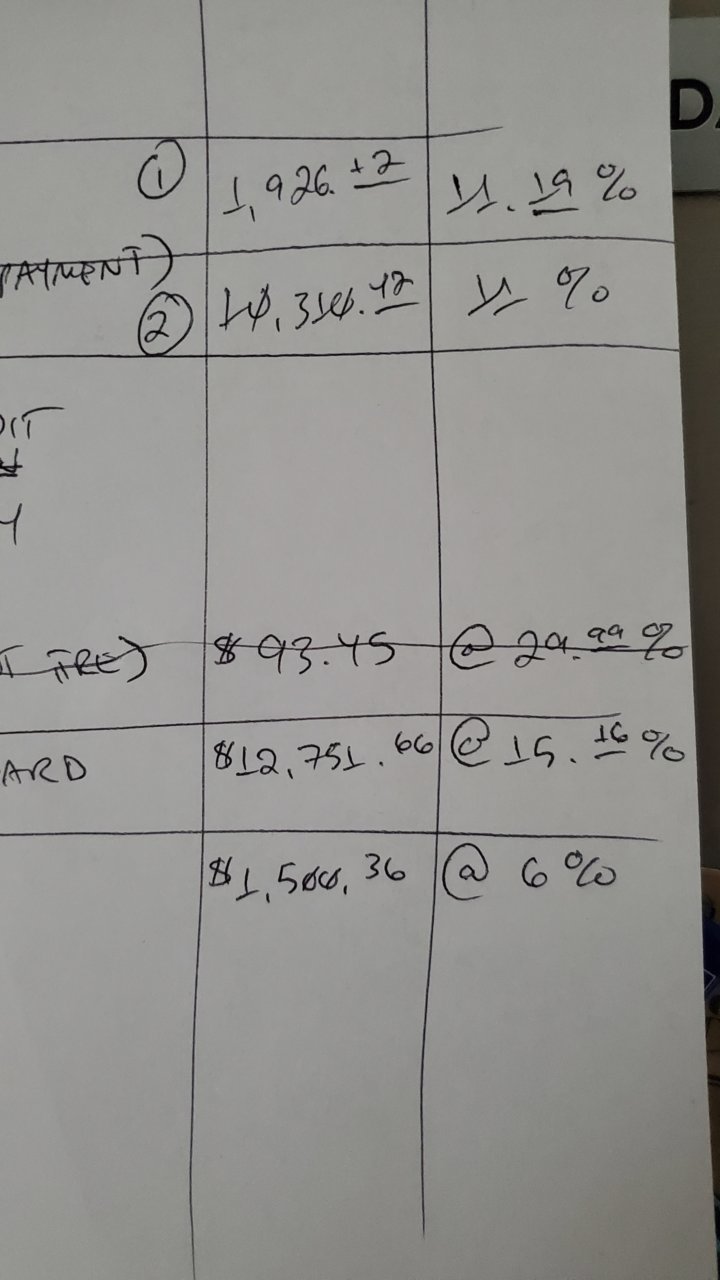 DA
① 1,926.12 11.19 %
PAYMENT)
② 10,310.42 11 %
DIT
Y
T TRE) $93.45 @ 29.99 %
ARD $12,751.66 @ 15.16 %
$1,500.36 @ 6 %